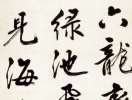 六龍
綠池
見海